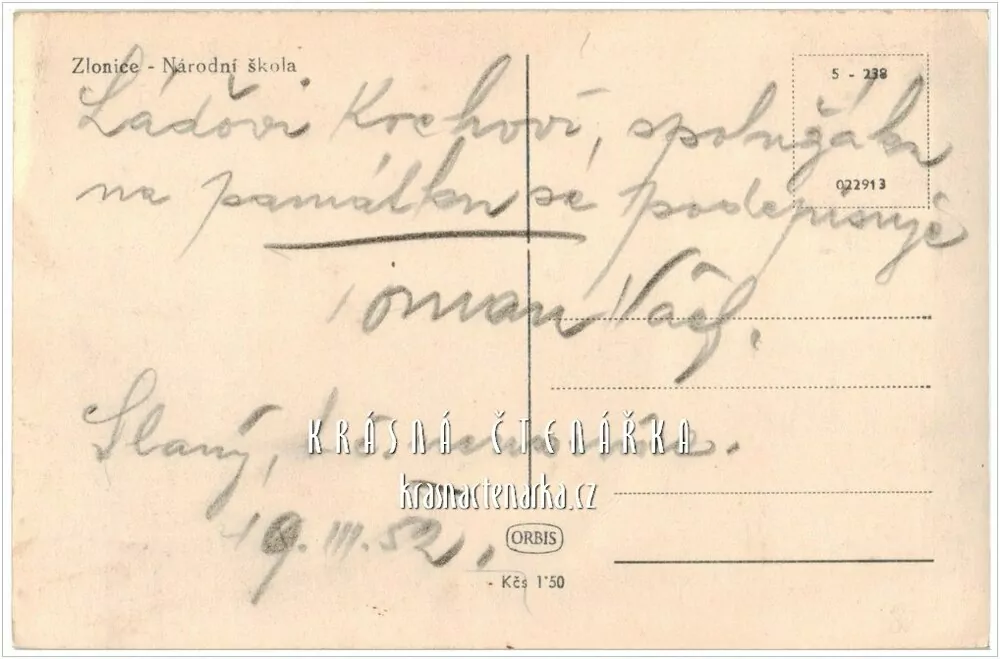 Zlonice - Národní škola
5 - 238
022913
Láďovi Krchovi, spolužáku
na památku se podepisuje
Toman Václ.
Slaný,
KRÁSNÁ ČTENÁŘKA
krasnactenarka.cz
19. III. 52.
ORBIS
Kčs 1'50